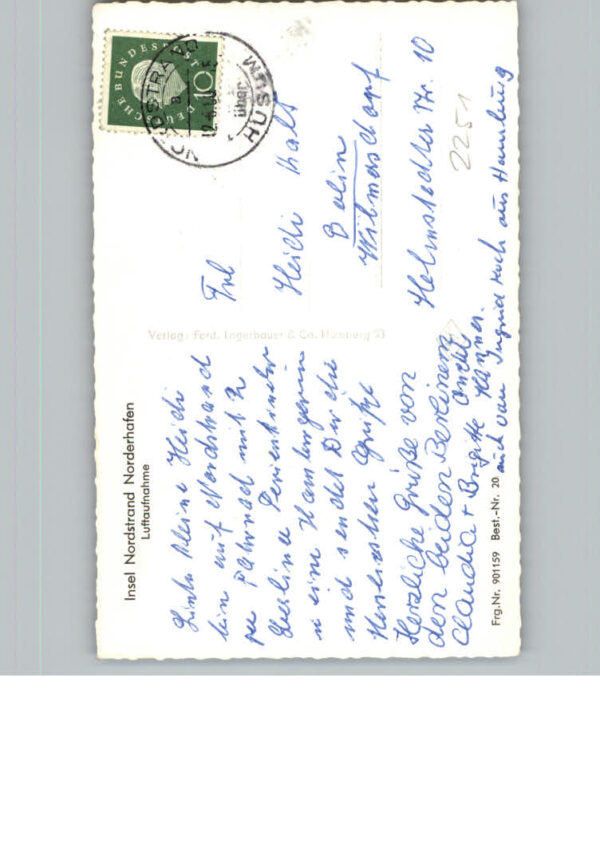 Insel Nordstrand Norderhafen
Luftaufnahme
Liebe kleine Heidi
bin auf Nordstrand
per Fahrrad mit 2
Berliner Ferienkinder
u eine Hamburgerin
und sendet Dir die
Herzlichen Grüße
Herzliche Grüße von
den beiden Berlinern
Claudia + Brigitte
auch von Ingrid Koch aus Hamburg
Frg.Nr. 901159 Best.-Nr. 20
Verlag: Ferd. Lagerbauer & Co. Hamburg 23
DEUTSCHE BUNDESPOST
10
NORDSTRAND
über
HUSUM
Frl
Heidi
Berlin
Wilmersdorf
Helmstedter Str. 10
2251